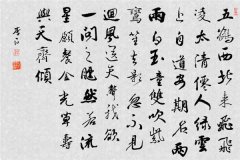 五鶴西北來飛飛
凌太清僊人緑雲
上自道安期名兩
兩白玉童雙吹紫
鸞笙去影忽不見
迴風送天聲我欲
一問之飄然若流
星願餐金光草壽
與天齊傾